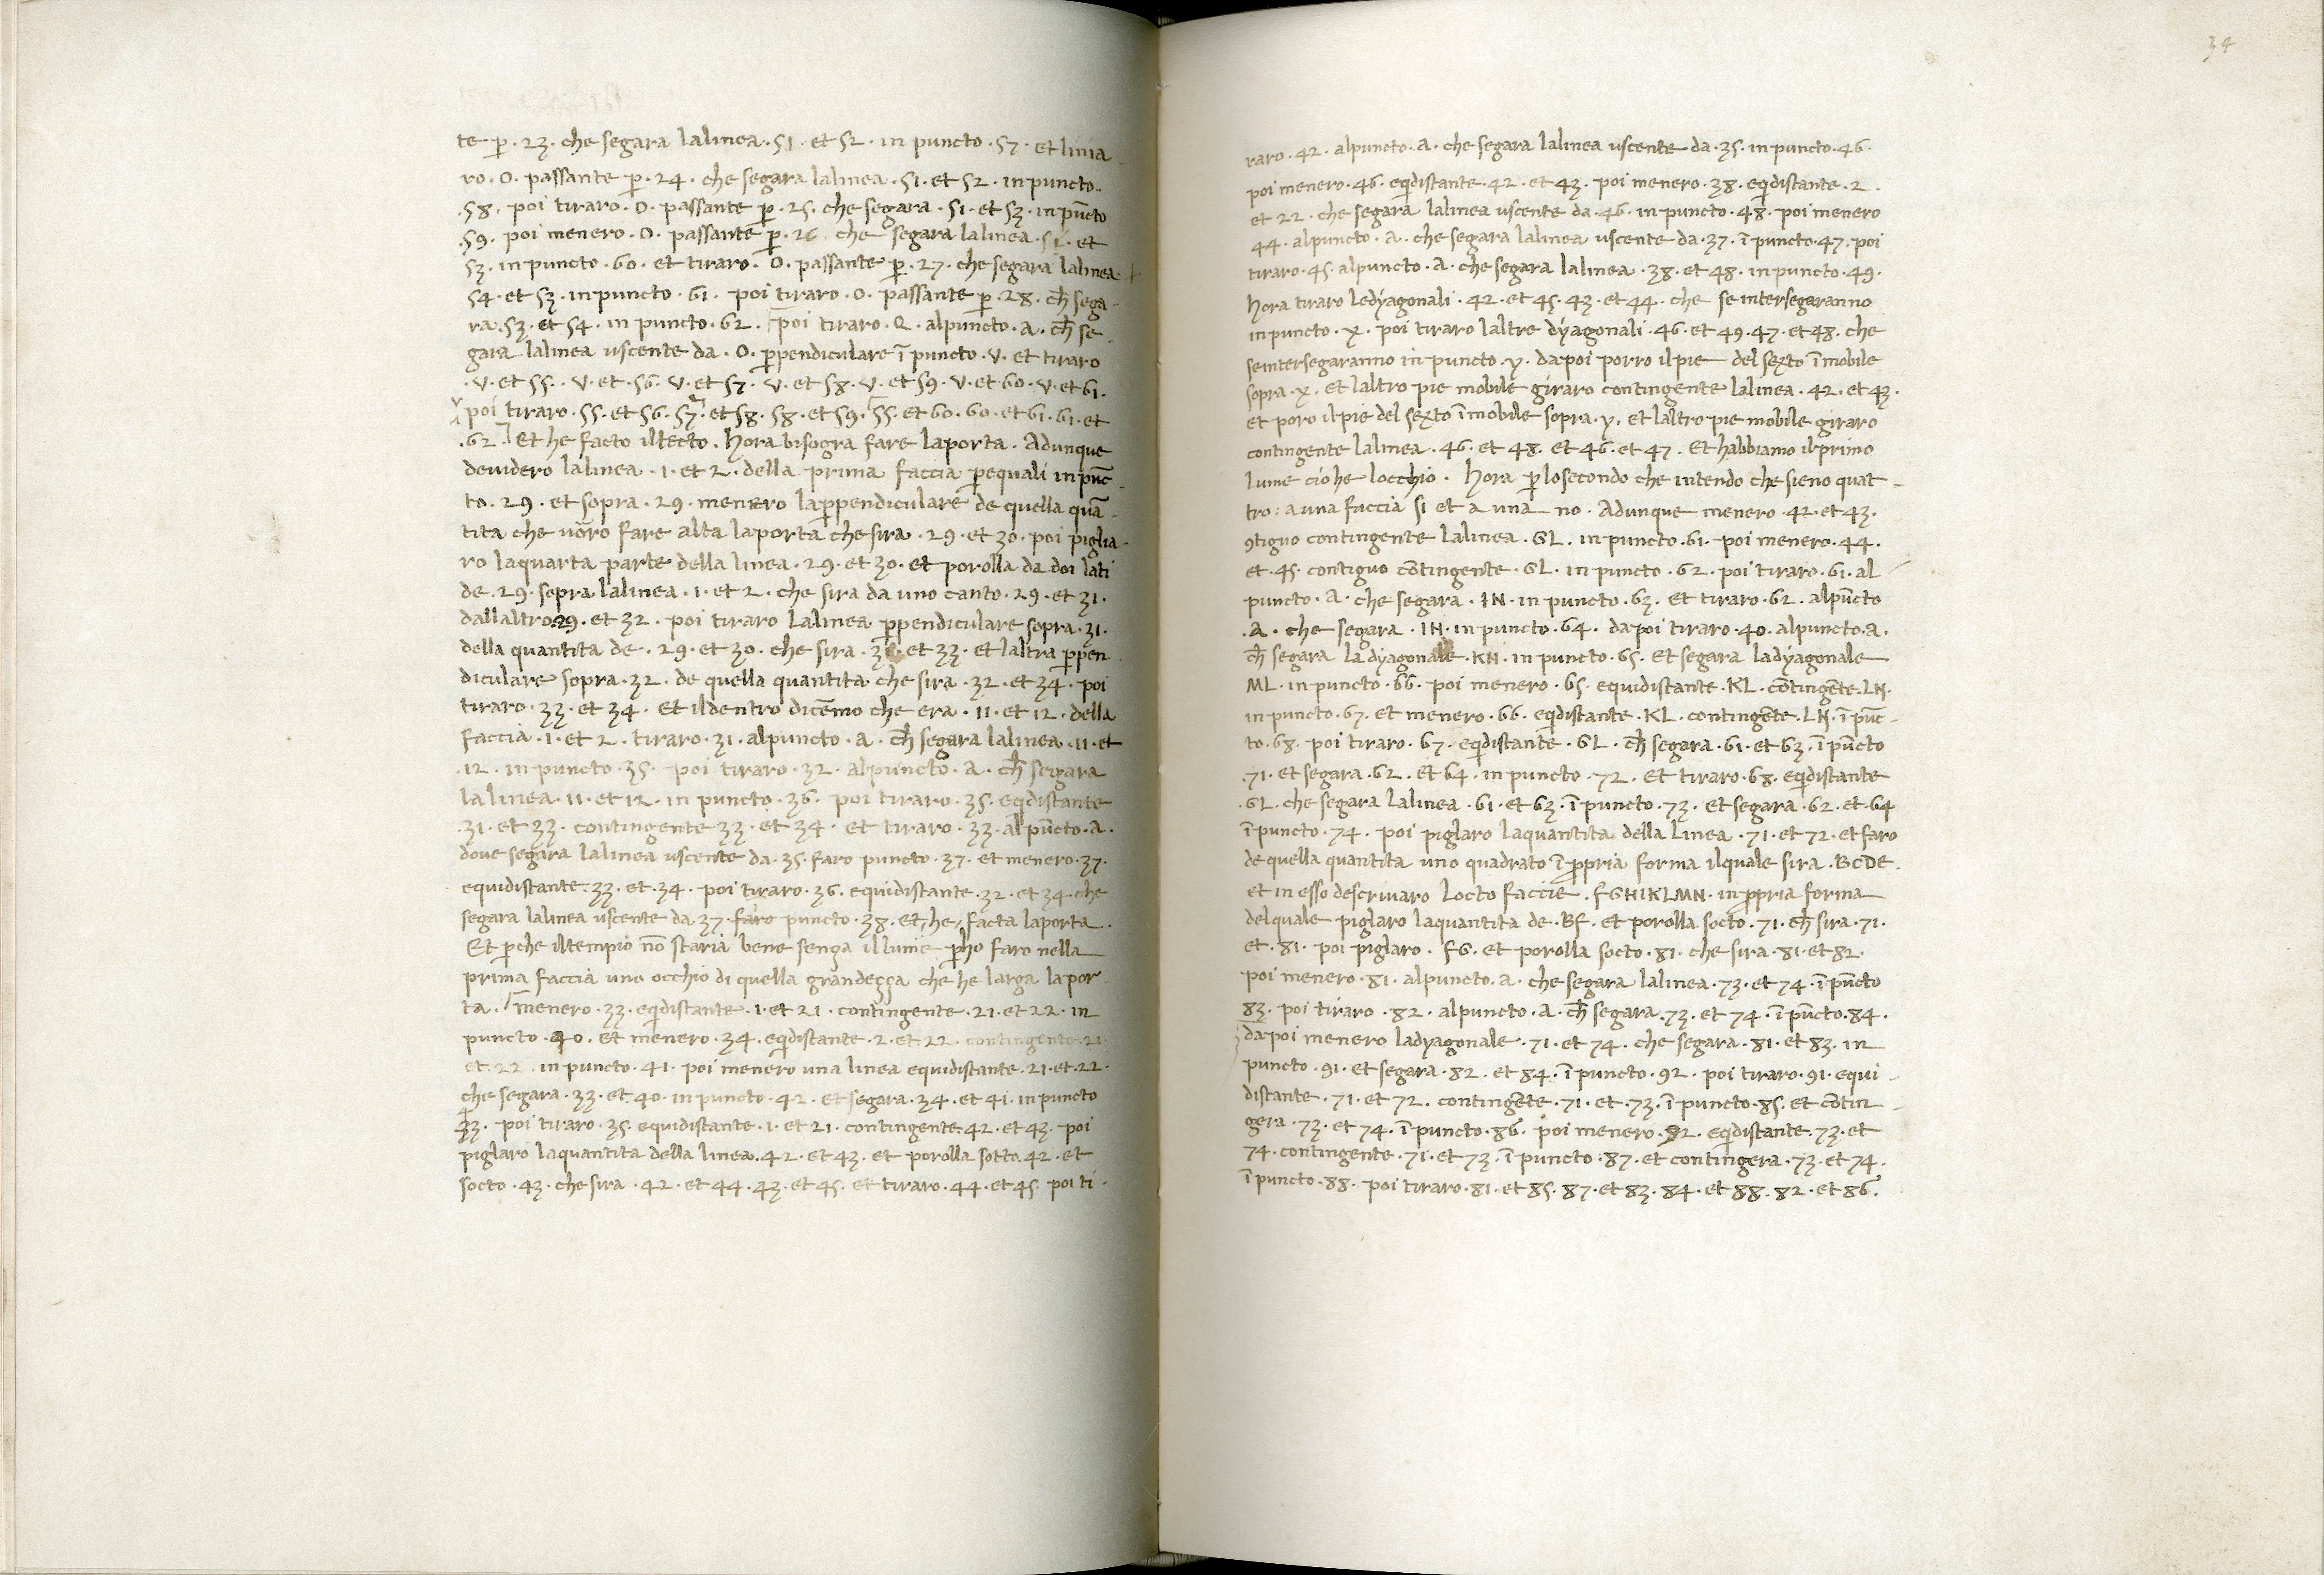 te p̄ · 23 · che segara lalinea · 51 · et 52 · in puncto · 57 · et linia
ro · O · passante p̄ · 24 · che segara lalinea · 51 · et 52 · in puncto ·
· 58 · poi tiraro · O · passante p̄ · 25 · che segara · 51 · et 53 · in pūcto
· 59 · poi menero · O · passante p̄ · 26 · che segara lalinea · 51 · et
53 · in puncto · 60 · et tiraro · O · passante p̄ · 27 · che segara lalinea
54 · et 53 · in puncto · 61 · poi tiraro · O · passante p̄ · 28 · ch̄ sega
ra · 53 · et 54 · in puncto · 62 · poi tiraro · Q · alpuncto · A · ch̄ se
gara lalinea uscente da · O · p̄pendiculare ī puncto · V · et tiraro
· V · et 55 · V · et · 56 · V · et 57 · V · et 58 · V · et 59 · V · et 60 · V · et 61 ·
poi tiraro · 55 · et 56 · 57 · et 58 · 58 · et 59 · 55 · et 60 · 60 · et 61 · 61 · et
· 62 · Et he facto iltecto · hora bisogra fare laporta · Adunque
deuidero lalinea · 1 · et 2 · della prima faccia p̄equali in pūc
to · 29 · et sopra · 29 · menero lap̄pendiculare de quella quā
tita che vōro fare alta laporta che sira · 29 · et 30 · poi piglia
ro laquarta parte della linea · 29 · et 30 · et porolla da doi lati
de · 29 · sopra lalinea · 1 · et 2 · che sira da uno canto · 29 · et 31 ·
dallaltro 29 · et 32 · poi tiraro lalinea p̄pendiculare sopra · 31 ·
della quantita de · 29 · et 30 · che sira · 31 · et 33 · et laltra p̄pen
diculare sopra · 32 · de quella quantita che sira · 32 · et 34 · poi
tiraro · 33 · et 34 · Et ildentro dicēmo che era · 11 · et 12 · della
faccia · 1 · et 2 · tiraro · 31 · alpuncto · A · ch̄ segara lalinea · 11 · et
· 12 · in puncto · 35 · poi tiraro · 32 · alpuncto · A · ch̄ segara
lalinea · 11 · et 12 · in puncto · 36 · poi tiraro · 35 · eq̄distante
· 31 · et 33 · contingente 33 · et 34 · et tiraro · 33 · al pūcto · A ·
doue segara lalinea uscente da · 35 · faro puncto · 37 · et menero · 37 ·
equidistante · 33 · et · 34 · poi tiraro · 36 · equidistante · 32 · et 34 · che
segara lalinea uscente da 37 · faro puncto · 38 · et he facta laporta ·
Et p̄che iltempio nō staria bene senza illume p̄ho faro nella
prima faccia uno occhio di quella grandezza che he larga lapor
ta · menero · 33 · eq̄distante · 1 · et 21 · contingente · 21 · et 22 · in
puncto · 40 · et menero · 34 · eq̄distante · 2 · et 22 · contingente · 21 ·
et · 22 · in puncto · 41 · poi menero una linea equidistante · 21 · et · 22 ·
che segara · 33 · et · 40 · in puncto · 42 · et segara · 34 · et 41 · in puncto
43 · poi tiraro · 35 · equidistante · 1 · et 21 · contingente · 42 · et 43 · poi
piglaro laquantita della linea · 42 · et 43 · et porolla sotto 42 · et
socto · 43 · che sira · 42 · et 44 · 43 · et 45 · et tiraro · 44 · et 45 · poi ti ·
34
raro · 42 · alpuncto · A · che segara lalinea uscente da · 35 · in puncto · 46 ·
poi menero · 46 · eq̄distante · 42 · et 43 · poi menero · 38 · eq̄distante · 2 ·
et 22 · che segara lalinea uscente da · 46 · in puncto · 48 · poi menero
44 · alpuncto · A · che segara lalinea uscente da · 37 · ī puncto · 47 · poi
tiraro · 45 · alpuncto · A · che segara lalinea · 38 · et 48 · in puncto · 49 ·
hora tiraro ledyagonali · 42 · et 45 · 43 · et 44 · che se intersegaranno
in puncto · X · poi tiraro laltre dyagonali · 46 · et 49 · 47 · et 48 · che
seintersegaranno in puncto · y · dapoi porro ilpie del sexto īmobile
sopra · X · et laltro pie mobile giraro contingente lalinea · 42 · et 43 ·
et poro ilpie del sexto īmobile sopra · y · et laltro pie mobile giraro
contingente lalinea · 46 · et 48 · et 46 · et 47 · Et habbiamo ilprimo
lume cio he locchio · hora p̄ losecondo che intendo che sieno quat
tro : a una faccia si et a una no · Adunque menero · 42 · et 43 ·
9tiguo contingente lalinea · GL · in puncto · 61 · poi menero · 44 ·
et · 45 · contiguo cōtingente · GL · in puncto · 62 · poi tiraro · 61 · al
puncto · A · che segara · IN · in puncto · 63 · et tiraro · 62 · alpūcto
· A · che segara · IN · in puncto · 64 · dapoi tiraro · 40 · alpuncto · A ·
ch̄ segara la dyagonale · KN · in puncto · 65 · et segara ladyagonale
ML · in puncto · 66 · poi menero · 65 · equidistante · KL · cōtingēte · LN ·
in puncto · 67 · et menero · 66 · eq̄distante · KL · contingēte · LN · ī pūc
to · 68 · poi tiraro · 67 · eq̄distante · GL · ch̄ segara · 61 · et 63 · ī pūcto
· 71 · et segara · 62 · et 64 · in puncto · 72 · et tiraro · 68 · eq̄distante
· GL · che segara lalinea · 61 · et 63 · ī puncto · 73 · et segara · 62 · et · 64
ī puncto · 74 · poi piglaro laquantita della linea · 71 · et 72 · et faro
de quella quantita uno quadrato ī p̄pria forma ilquale sira · BCDE ·
et in esso descriuaro locto faccie · FGHIKLMN · in p̄pria forma
delquale piglaro laquantita de · BF · et porolla socto · 71 · ch̄ sira · 71 ·
et · 81 · poi piglaro · FG · et porolla socto · 81 · che sira · 81 · et 82 ·
poi menero · 81 · alpuncto · A · che segara lalinea · 73 · et 74 · ī pūcto
83 · poi tiraro · 82 · alpuncto · A · ch̄ segara · 73 · et 74 · ī pūcto · 84 ·
dapoi menero ladyagonale · 71 · et 74 · che segara · 81 · et 83 · in
puncto · 91 · et segara · 82 · et 84 · ī puncto · 92 · poi tiraro · 91 · equi
distante · 71 · et 72 · contingēte · 71 · et · 73 · ī puncto · 85 · et cōtin
gera · 73 · et 74 · ī puncto · 86 · poi menero · 92 · eq̄distante · 73 · et
74 · contingente · 71 · et 73 · ī puncto · 87 · et contingera · 73 · et 74 ·
ī puncto · 88 · poi tiraro · 81 · et 85 · 87 · et 83 · 84 · et 88 · 82 · et 86 ·